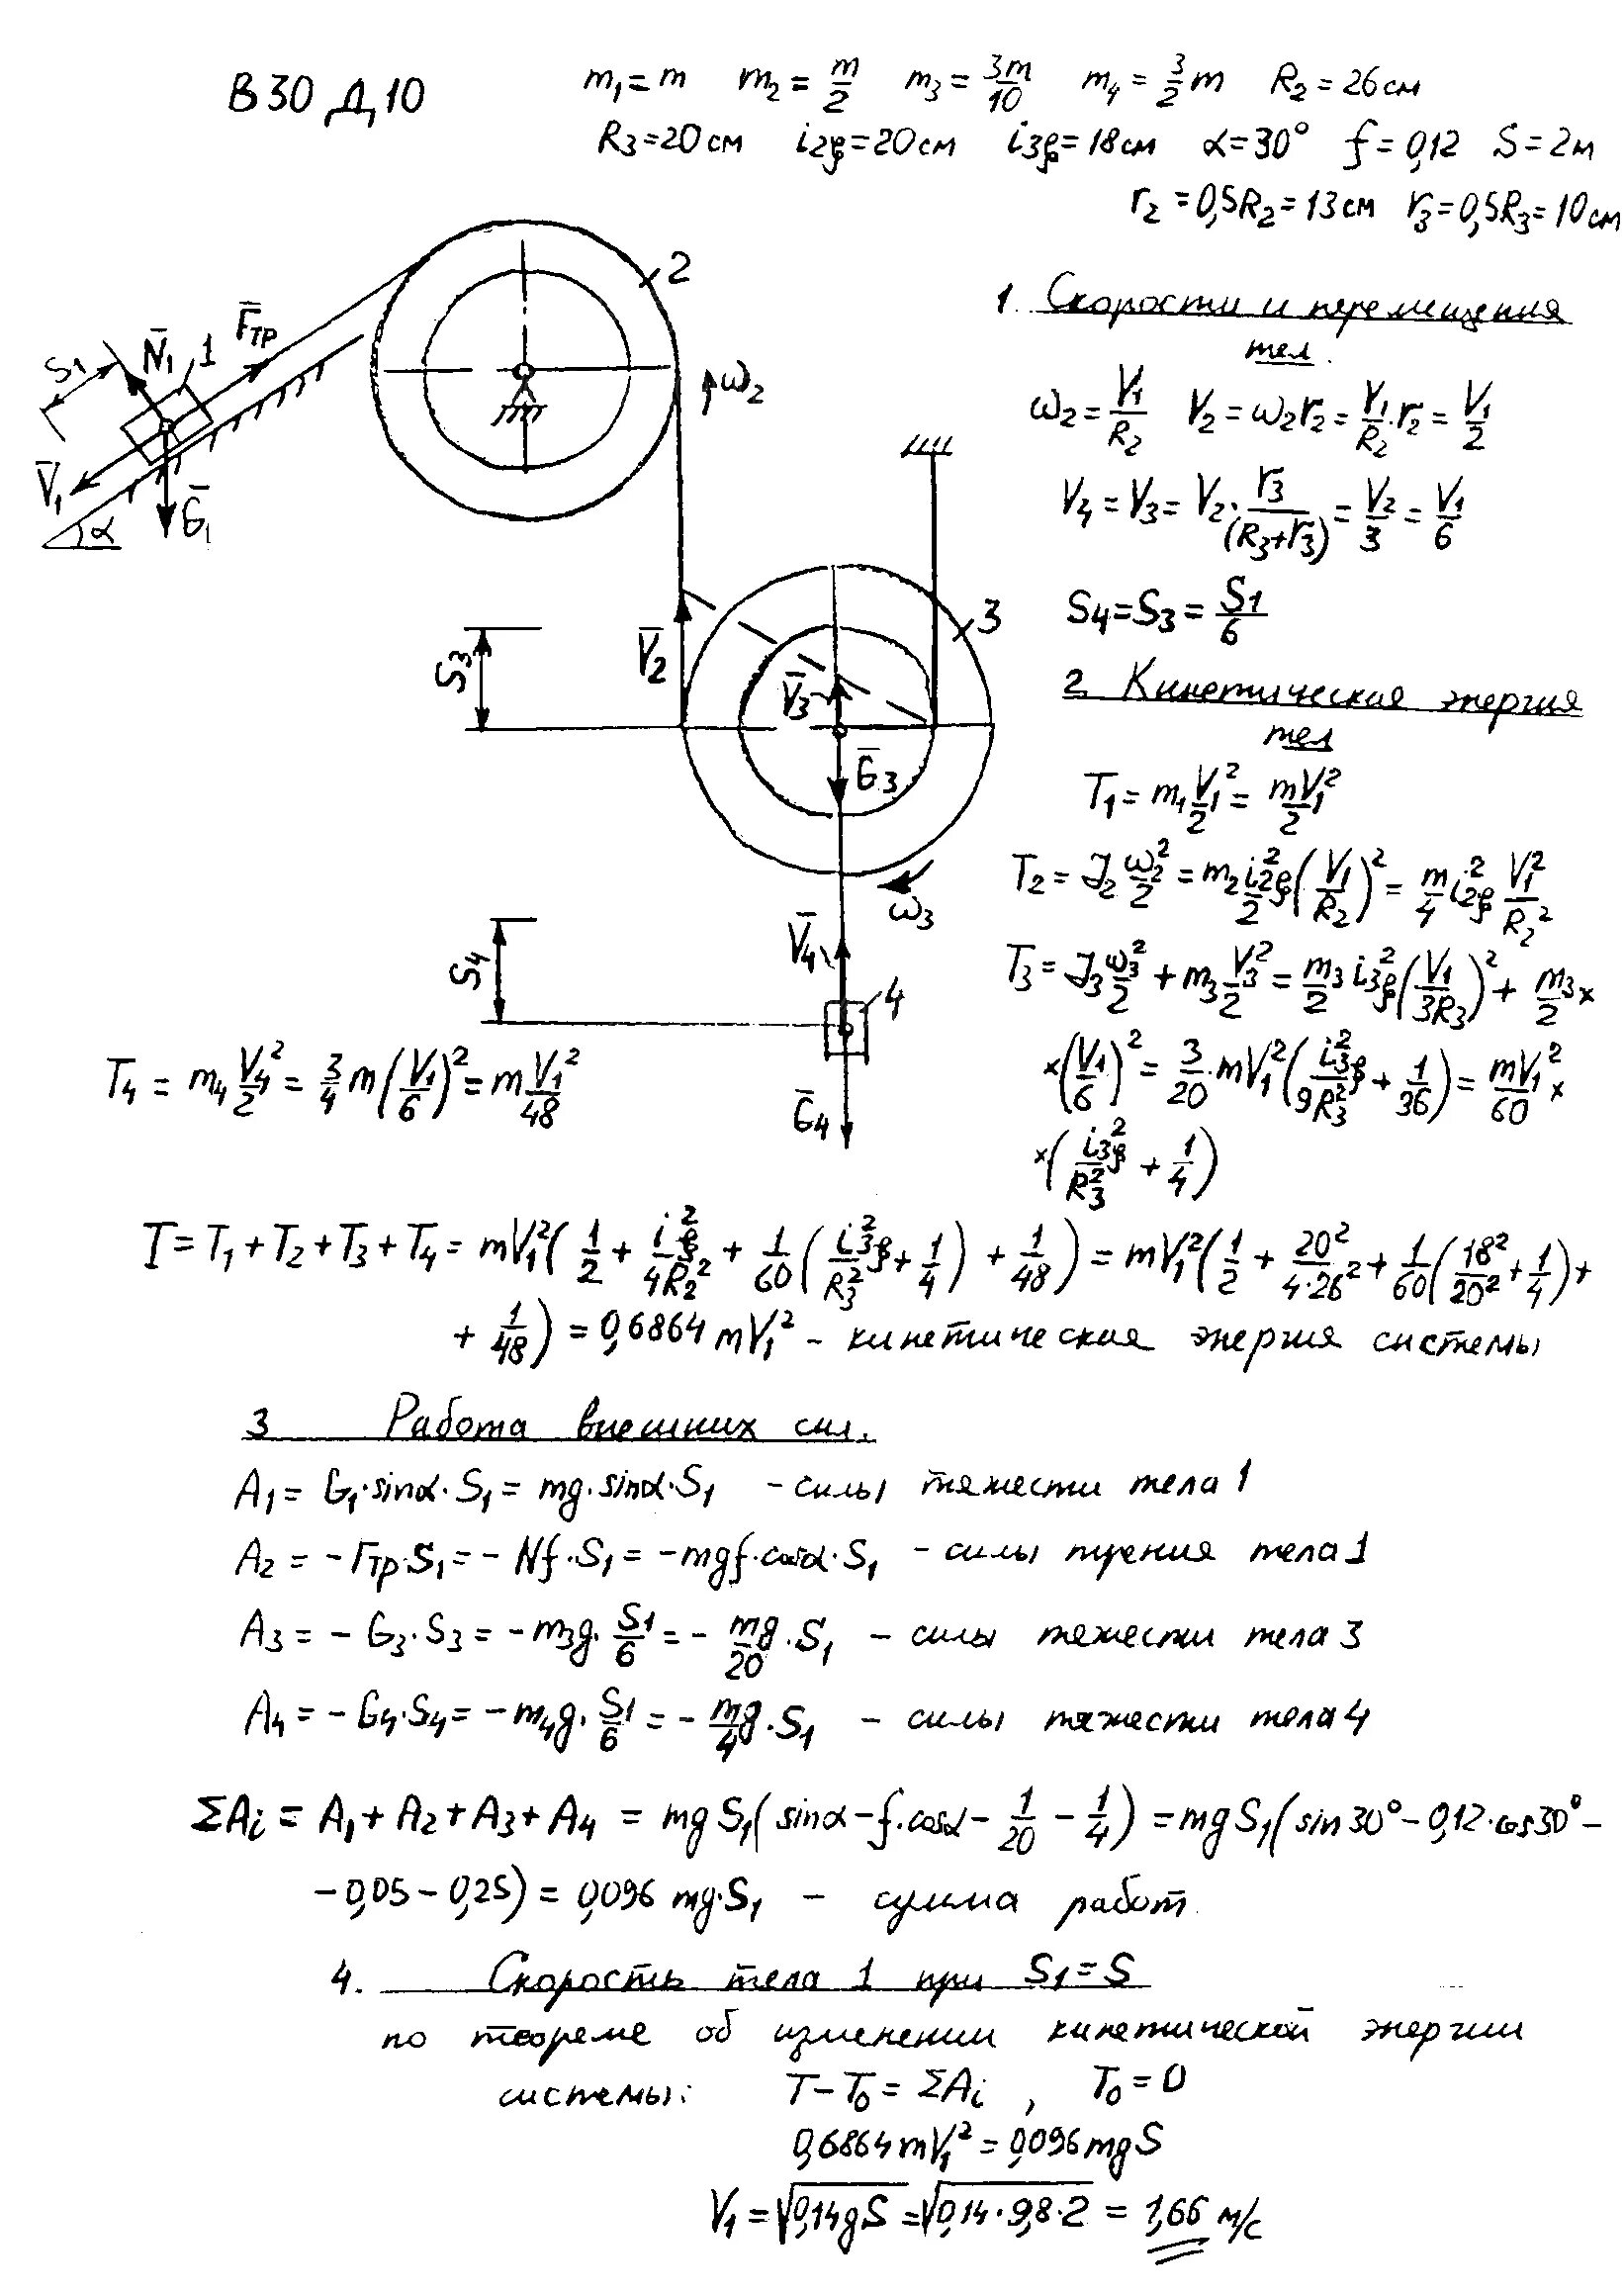 В30 Д10
m₁ = m   m₂ = m/2   m₃ = 3m/10   m₄ = 3/2 m   R₂ = 26 см
R₃ = 20 см   i₂ξ = 20 см   i₃ξ = 18 см   α = 30°   f = 0,12   S = 2 м
r₂ = 0,5R₂ = 13 см   r₃ = 0,5R₃ = 10 см
2
F̄тр
N̄₁
1
S₁
V̄₁
Ḡ₁
α
ω₂
1. Скорости и перемещения
тел.
ω₂ = V₁/R₂   V₂ = ω₂r₂ = V₁/R₂·r₂ = V₁/2
V₄ = V₃ = V₂·r₃/(R₃+r₃) = V₂/3 = V₁/6
S₄ = S₃ = S₁/6
3
V̄₂
S₃
V̄₃
Ḡ₃
ω₃
V̄₄
S₄
4
Ḡ₄
2. Кинетическая энергия
тел
T₁ = m₁V₁²/2 = mV₁²/2
T₂ = J₂ω₂²/2 = m₂ i₂ξ²/2 (V₁/R₂)² = m/4 i₂ξ² V₁²/R₂²
T₃ = J₃ω₃²/2 + m₃V₃²/2 = m₃/2 i₃ξ² (V₁/3R₃)² + m₃/2 ×
×(V₁/6)² = 3/20·mV₁²(i₃ξ²/9R₃² + 1/36) = mV₁²/60 ×
×(i₃ξ²/R₃² + 1/4)
T₄ = m₄V₄²/2 = 3/4 m(V₁/6)² = mV₁²/48
T = T₁ + T₂ + T₃ + T₄ = mV₁²(1/2 + i²ξ/4R₂² + 1/60(i₃ξ²/R₃² + 1/4) + 1/48) = mV₁²(1/2 + 20²/4·26² + 1/60(18²/20² + 1/4) +
+ 1/48) = 0,6864 mV₁² – кинетическая энергия системы
3 Работа внешних сил.
A₁ = G₁·sinα·S₁ = mg·sinα·S₁ – силы тяжести тела 1
A₂ = –Fтр·S₁ = –Nf·S₁ = –mgf·cosα·S₁ – силы трения тела 1
A₃ = –G₃·S₃ = –m₃g·S₁/6 = –mg/20·S₁ – силы тяжести тела 3
A₄ = –G₄·S₄ = –m₄g·S₁/6 = –mg/4·S₁ – силы тяжести тела 4
ΣAi = A₁ + A₂ + A₃ + A₄ = mgS₁(sinα – f·cosα – 1/20 – 1/4) = mgS₁(sin30° – 0,12·cos30° –
– 0,05 – 0,25) = 0,096 mg·S₁ – сумма работ.
4. Скорость тела 1 при S₁ = S
по теореме об изменении кинетической энергии
системы: T – T₀ = ΣAi , T₀ = 0
0,6864mV₁² = 0,096mgS
V₁ = √0,14gS = √0,14·9,8·2 = 1,66 м/с